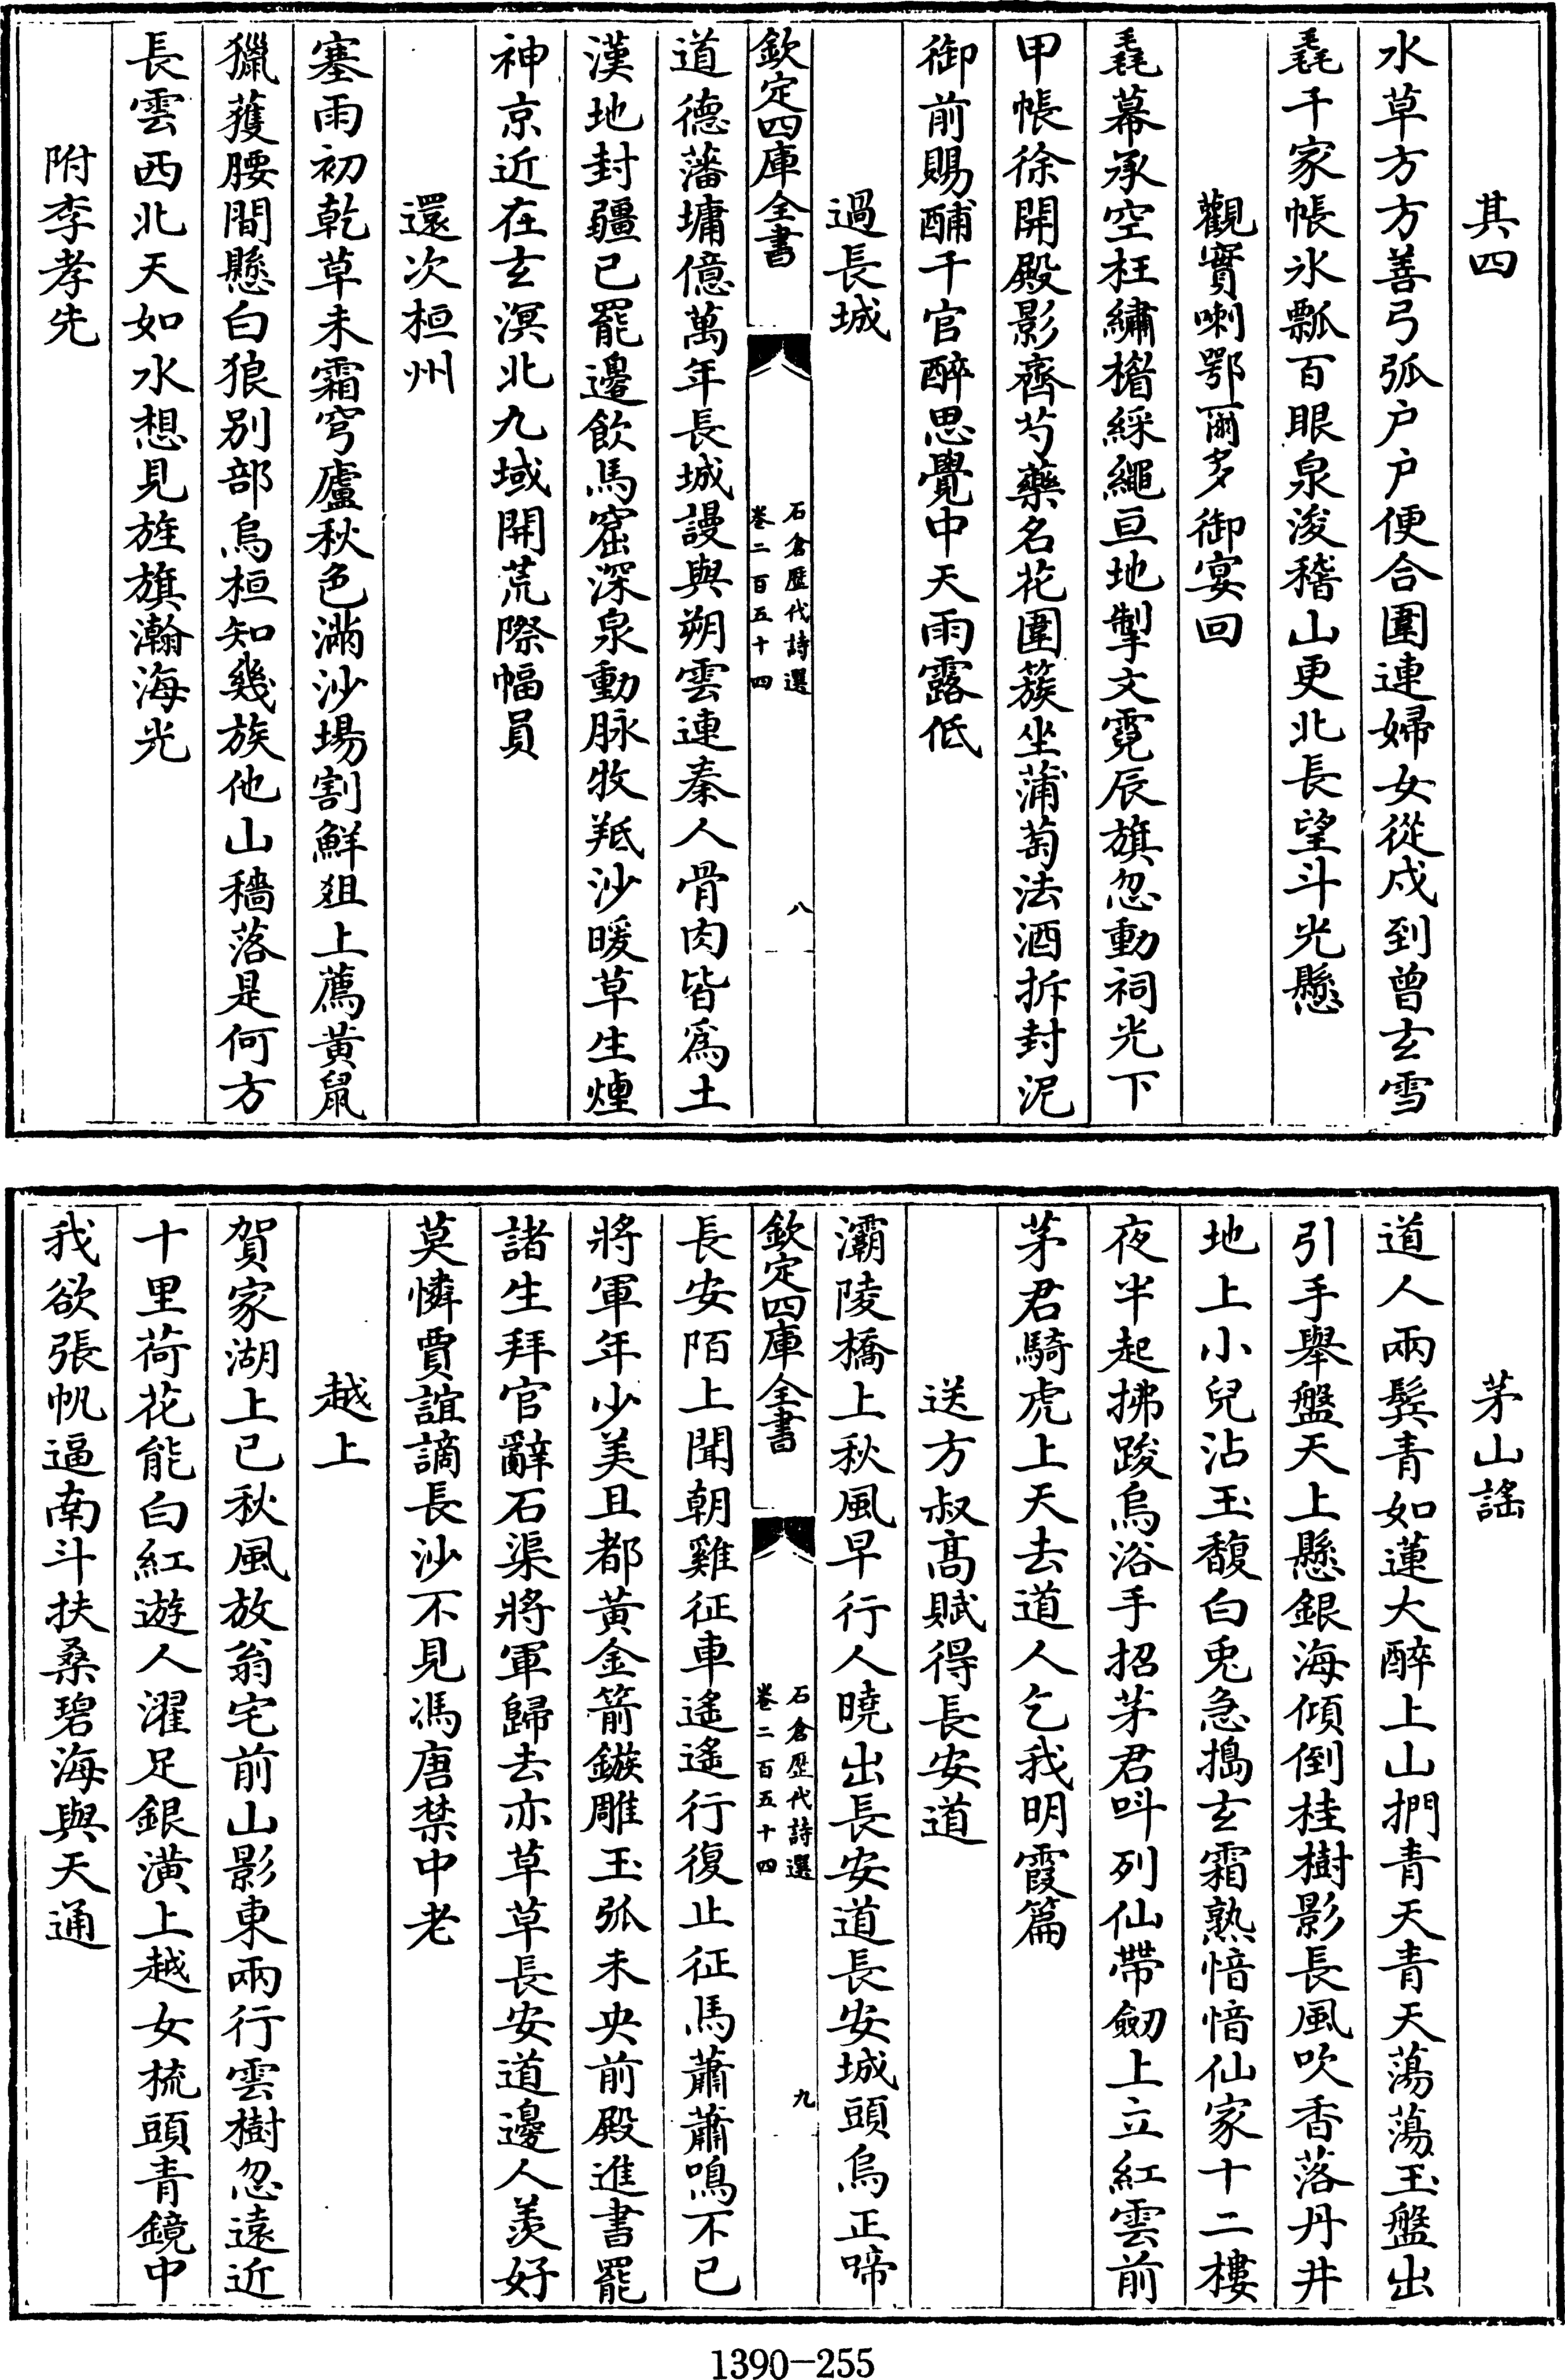 其四
水草方方善弓弧户户便合圍連婦女從戍到曾玄雪
毳千家帳氷瓢百眼泉浚稽山更北長望斗光懸
觀實喇鄂爾多御宴回
毳幕承空柱繡楣綵繩亘地掣文霓辰旗忽動祠光下
甲帳徐開殿影齊芍藥名花圍簇坐蒲萄法酒拆封泥
御前賜酺千官醉思覺中天雨露低
過長城
欽定四庫全書
石倉歷代詩選
卷二百五十四
八
道德藩墉億萬年長城謾與朔雲連秦人骨肉皆爲土
漢地封疆已罷邊飲馬窟深泉動脉牧羝沙暖草生煙
神京近在玄溟北九域開荒際幅員
還次桓州
塞雨初乾草未霜穹廬秋色滿沙場割鮮俎上薦黃鼠
獵獲腰間懸白狼别部烏桓知幾族他山穭落是何方
長雲西北天如水想見旌旗瀚海光
附李孝先
茅山謠
道人兩鬂青如蓮大醉上山捫青天青天蕩蕩玉盤出
引手舉盤天上懸銀海傾倒桂樹影長風吹香落丹井
地上小兒沾玉馥白兎急搗玄霜熟愔愔仙家十二樓
夜半起拂踆烏浴手招茅君呌列仙帶劒上立紅雲前
茅君騎虎上天去道人乞我明霞篇
送方叔髙賦得長安道
灞陵橋上秋風早行人曉出長安道長安城頭烏正啼
欽定四庫全書
石倉歷代詩選
卷二百五十四
九
長安陌上聞朝雞征車遙遙行復止征馬蕭蕭鳴不已
將軍年少美且都黃金箭鏃雕玉弧未央前殿進書罷
諸生拜官辭石渠將軍歸去亦草草長安道邊人羨好
莫憐賈誼謫長沙不見馮唐禁中老
越上
賀家湖上已秋風放翁宅前山影東兩行雲樹忽遠近
十里荷花能白紅遊人濯足銀潢上越女梳頭青鏡中
我欲張帆逼南斗扶桑碧海與天通
1390-255